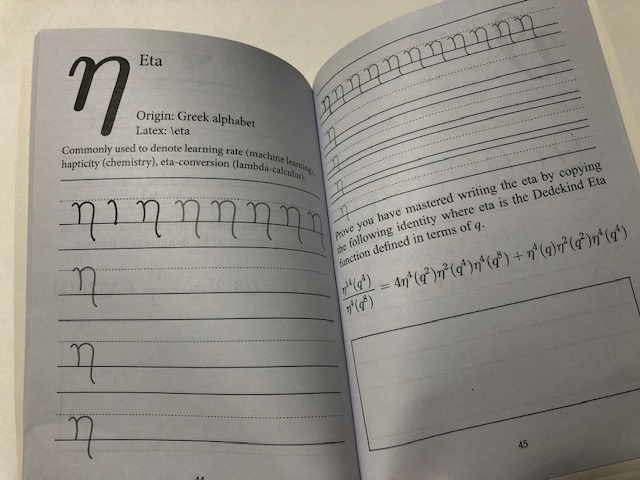 η
Eta
Origin: Greek alphabet
Latex: \eta
Commonly used to denote learning rate (machine learning),
hapticity (chemistry), eta-conversion (lambda-calculus).
η ɿ η η η η η η
η
η
η
η η η η η η η η η η η
η
η
η
η
Prove you have mastered writing the eta by copying
the following identity where eta is the Dedekind Eta
function defined in terms of q.
η¹⁴(q⁴)/η⁴(q⁸) = 4η⁴(q²)η²(q⁴)η⁴(q⁸) + η⁴(q)η²(q²)η⁴(q⁴)
45